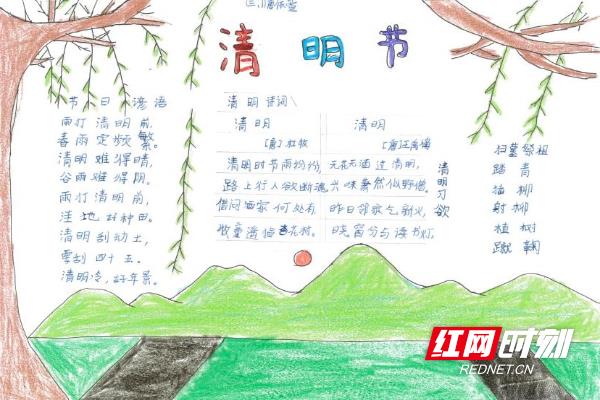 清明节
节日谚语
雨打清明前,
春雨定频繁。
清明难得晴,
谷雨难得阴。
雨打清明前,
洼地好种田。
清明刮动土,
要刮四十五。
清明冷,好年景。
清明诗词
清明
[唐]杜牧
清明时节雨纷纷,
路上行人欲断魂
借问酒家何处有
牧童遥指杏花村。
清明
[唐]王禹偁
无花无酒过清明,
兴味萧然似野僧。
昨日邻家乞新火,
晓窗分与读书灯。
清明习欲
扫墓祭祖
踏青
插柳
射柳
植树
蹴鞠
红网时刻
REDNET.CN